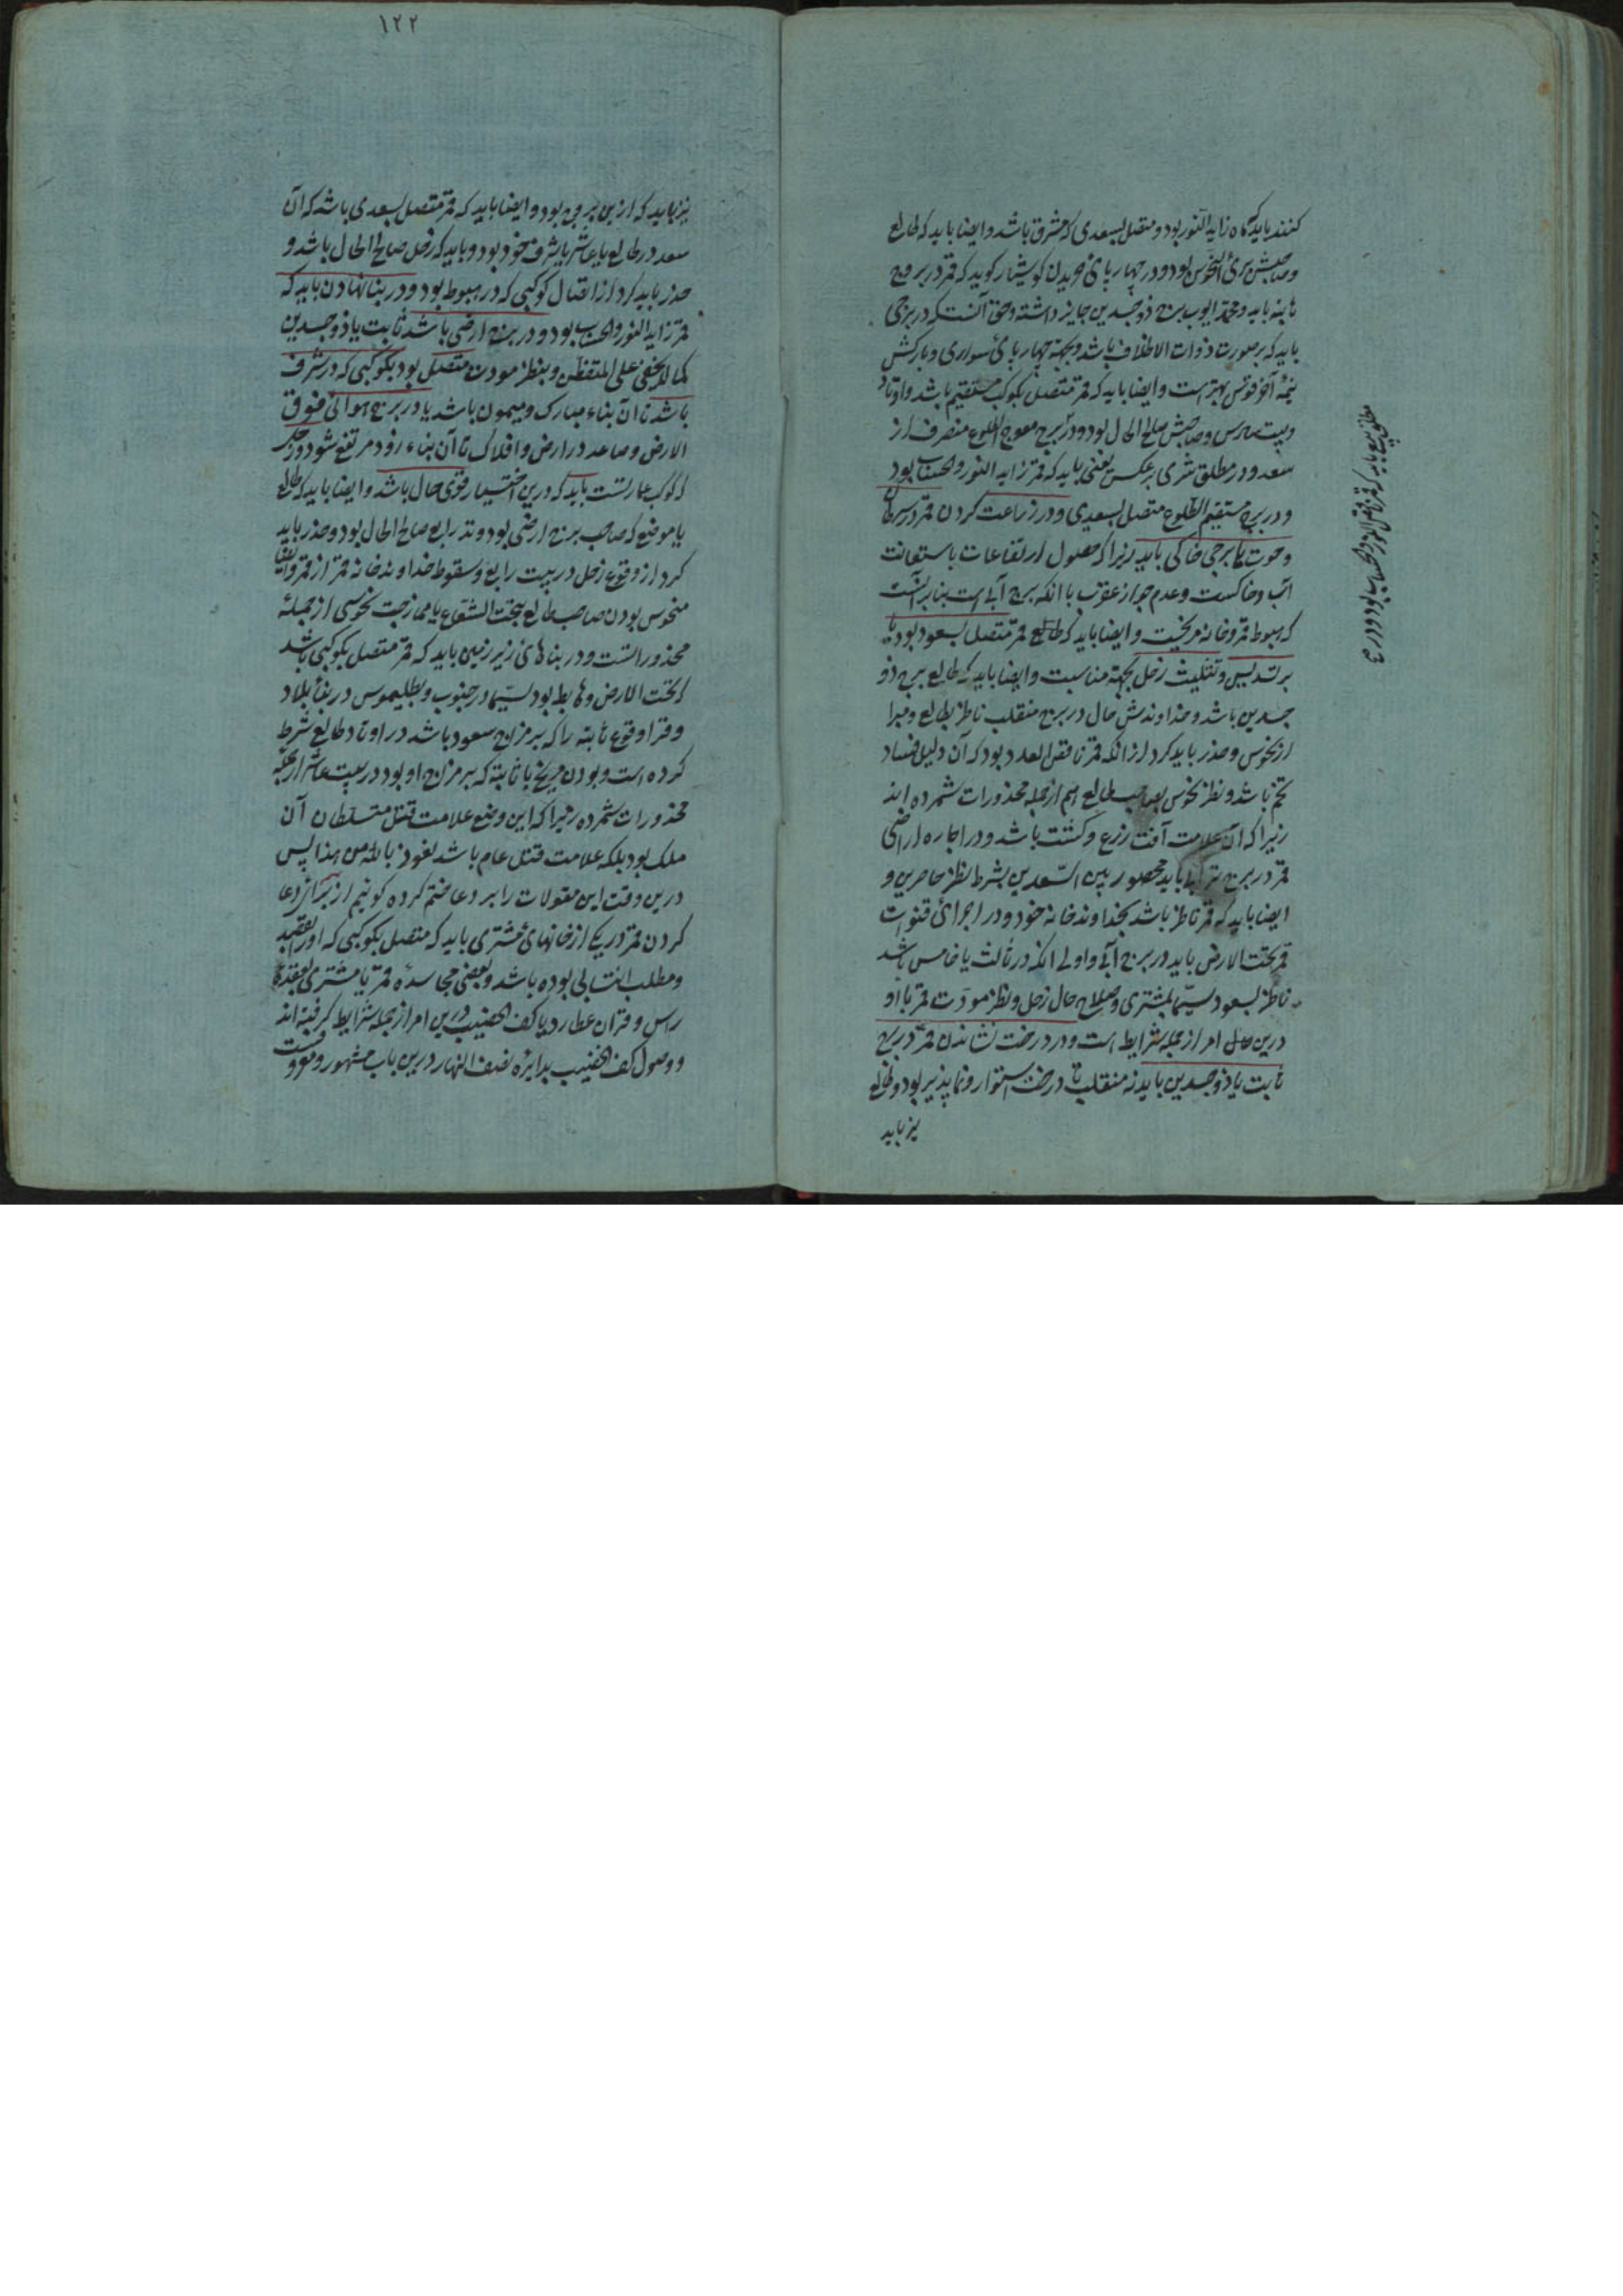 کنند باید که ماه زاید النور بود و متصل بسعدی که مشرق باشد و ایضا باید که طالع
و صاحبش بری از نحوس بود و در چهارپای خریدن کوشیار کوید که قمر در بروج
ثابته باید و محمد ایوب برج ذوجسدین جایز داشته و حق آنست که در برجی
باید که بر صورت ذوات الاظلاف باشد و بجهة چهارپای سواری و بارکش
نیمهٔ آخر قوس بهتر است و ایضا باید که قمر متصل بکوکب مستقیم باشد و اوتاد
و بیت سادس و صاحبش صالح الحال بود و در برج معوج الطلوع منصرف از
سعد و در مطلق شری برعکس یعنی باید که قمر زاید النور والحساب بود
و در برج مستقیم الطلوع متصل بسعدی و در زراعت کردن قمر در سرطان
و حوت یا برجی خاکی باید زیرا که حصول ارتفاعات باستعانت
آب و خاکست و عدم جواز عقرب با آنکه برج آبی است بنابر آنست
که هبوط قمر و خانه مریخست و ایضا باید که طالع قمر متصل بسعود بود یا
بر تسدیس و تثلیث زحل بجهة مناسبت و ایضا باید که طالع برج ذو
جسدین باشد و خداوندش حال در برج منقلب ناظر بطالع و مبرا
از نحوس و حذر باید کرد از آنکه قمر ناقص العدد بود که آن دلیل فساد
تخم باشد و نظر نحوس بصاحب طالع هم از جمله محذورات شمرده اند
زیرا که آن علامت آفت زرع و کشت باشد و در اجاره اراضی
قمر در برج ترابی باید محصور بین السعدین بشرط نظر حاصرین و
ایضا باید که قمر ناظر باشد بخداوند خانه خود و در اجرای قنوات
قمر تحت الارض باید در برج آبی و اولی آنکه در ثالث یا خامس باشد
ناظر بسعود لاسیما بمشتری و صلاح حال زحل و نظر مودت قمر با او
درین امر از جمله شرایط است و در درخت نشاندن قمر در برج
ثابت یا ذوجسدین باید نه منقلب تا درخت استوار و نماپذیر بود و طالع
نیز باید
مطلق بیع باید که قمر ناقص النور والحساب بود و در برج
۱۲۲
نیز باید که ازین بروج بود و ایضا باید که قمر متصل بسعدی باشد که آن
سعد در طالع یا عاشر یا شرف خود بود و باید که زحل صالح الحال باشد و
حذر باید کرد از اتصال کوکبی که در هبوط بود و در بنا نهادن باید که
قمر زاید النور والحساب بود و در برج ارضی باشد ثابت یا ذوجسدین
کما لا یخفی علی المتفطن و بنظر مودت متصل بود بکوکبی که در شرف
باشد تا آن بناء مبارک و میمون باشد یا در برج هوائی فوق
الارض و صاعد در ارض و افلاک تا آن بناء زود مرتفع شود و زحل
که کوکب عمارتست باید که درین اختیار قوی حال باشد و ایضا باید که طالع
یا موضع که صاحب برج ارضی بود وتد رابع صالح الحال بود و حذر باید
کرد از وقوع زحل در بیت رابع و سقوط خداوند خانه قمر از قمر و ایضا
منحوس بودن صاحب طالع بتحت الشعاع یا ممازجت نحوسی از جمله
محذوراتست و در بناهای زیر زمین باید که قمر متصل بکوکبی باشد
که تحت الارض و هابط بود لاسیما در جنوب و بطلیموس در بناء بلاد
و قرا وقوع ثابته را که بر مزاج سعود باشد در اوتاد طالع شرط
کرده است و بودن مریخ یا ثابته که بر مزاج او بود در بیت عاشر از جمله
محذورات شمرده زیرا که این وضع علامت قتل متسلطان آن
ملک بود بلکه علامت قتل عام باشد نعوذ بالله من هذا پس
درین وقت این مقولات را بر دعا ختم کرده کوئیم از برای دعا
کردن قمر در یکی از خانهای مشتری باید که متصل بکوکبی که او را بقصد
و مطلب انتسابی بوده باشد و بعضی مجاسده قمر یا مشتری بعقده
راس و قران عطارد یا کف الخضیب درین امر از جمله شرایط کرفته اند
و وصول کف الخضیب بدایره نصف النهار درین باب مشهور و معروفست